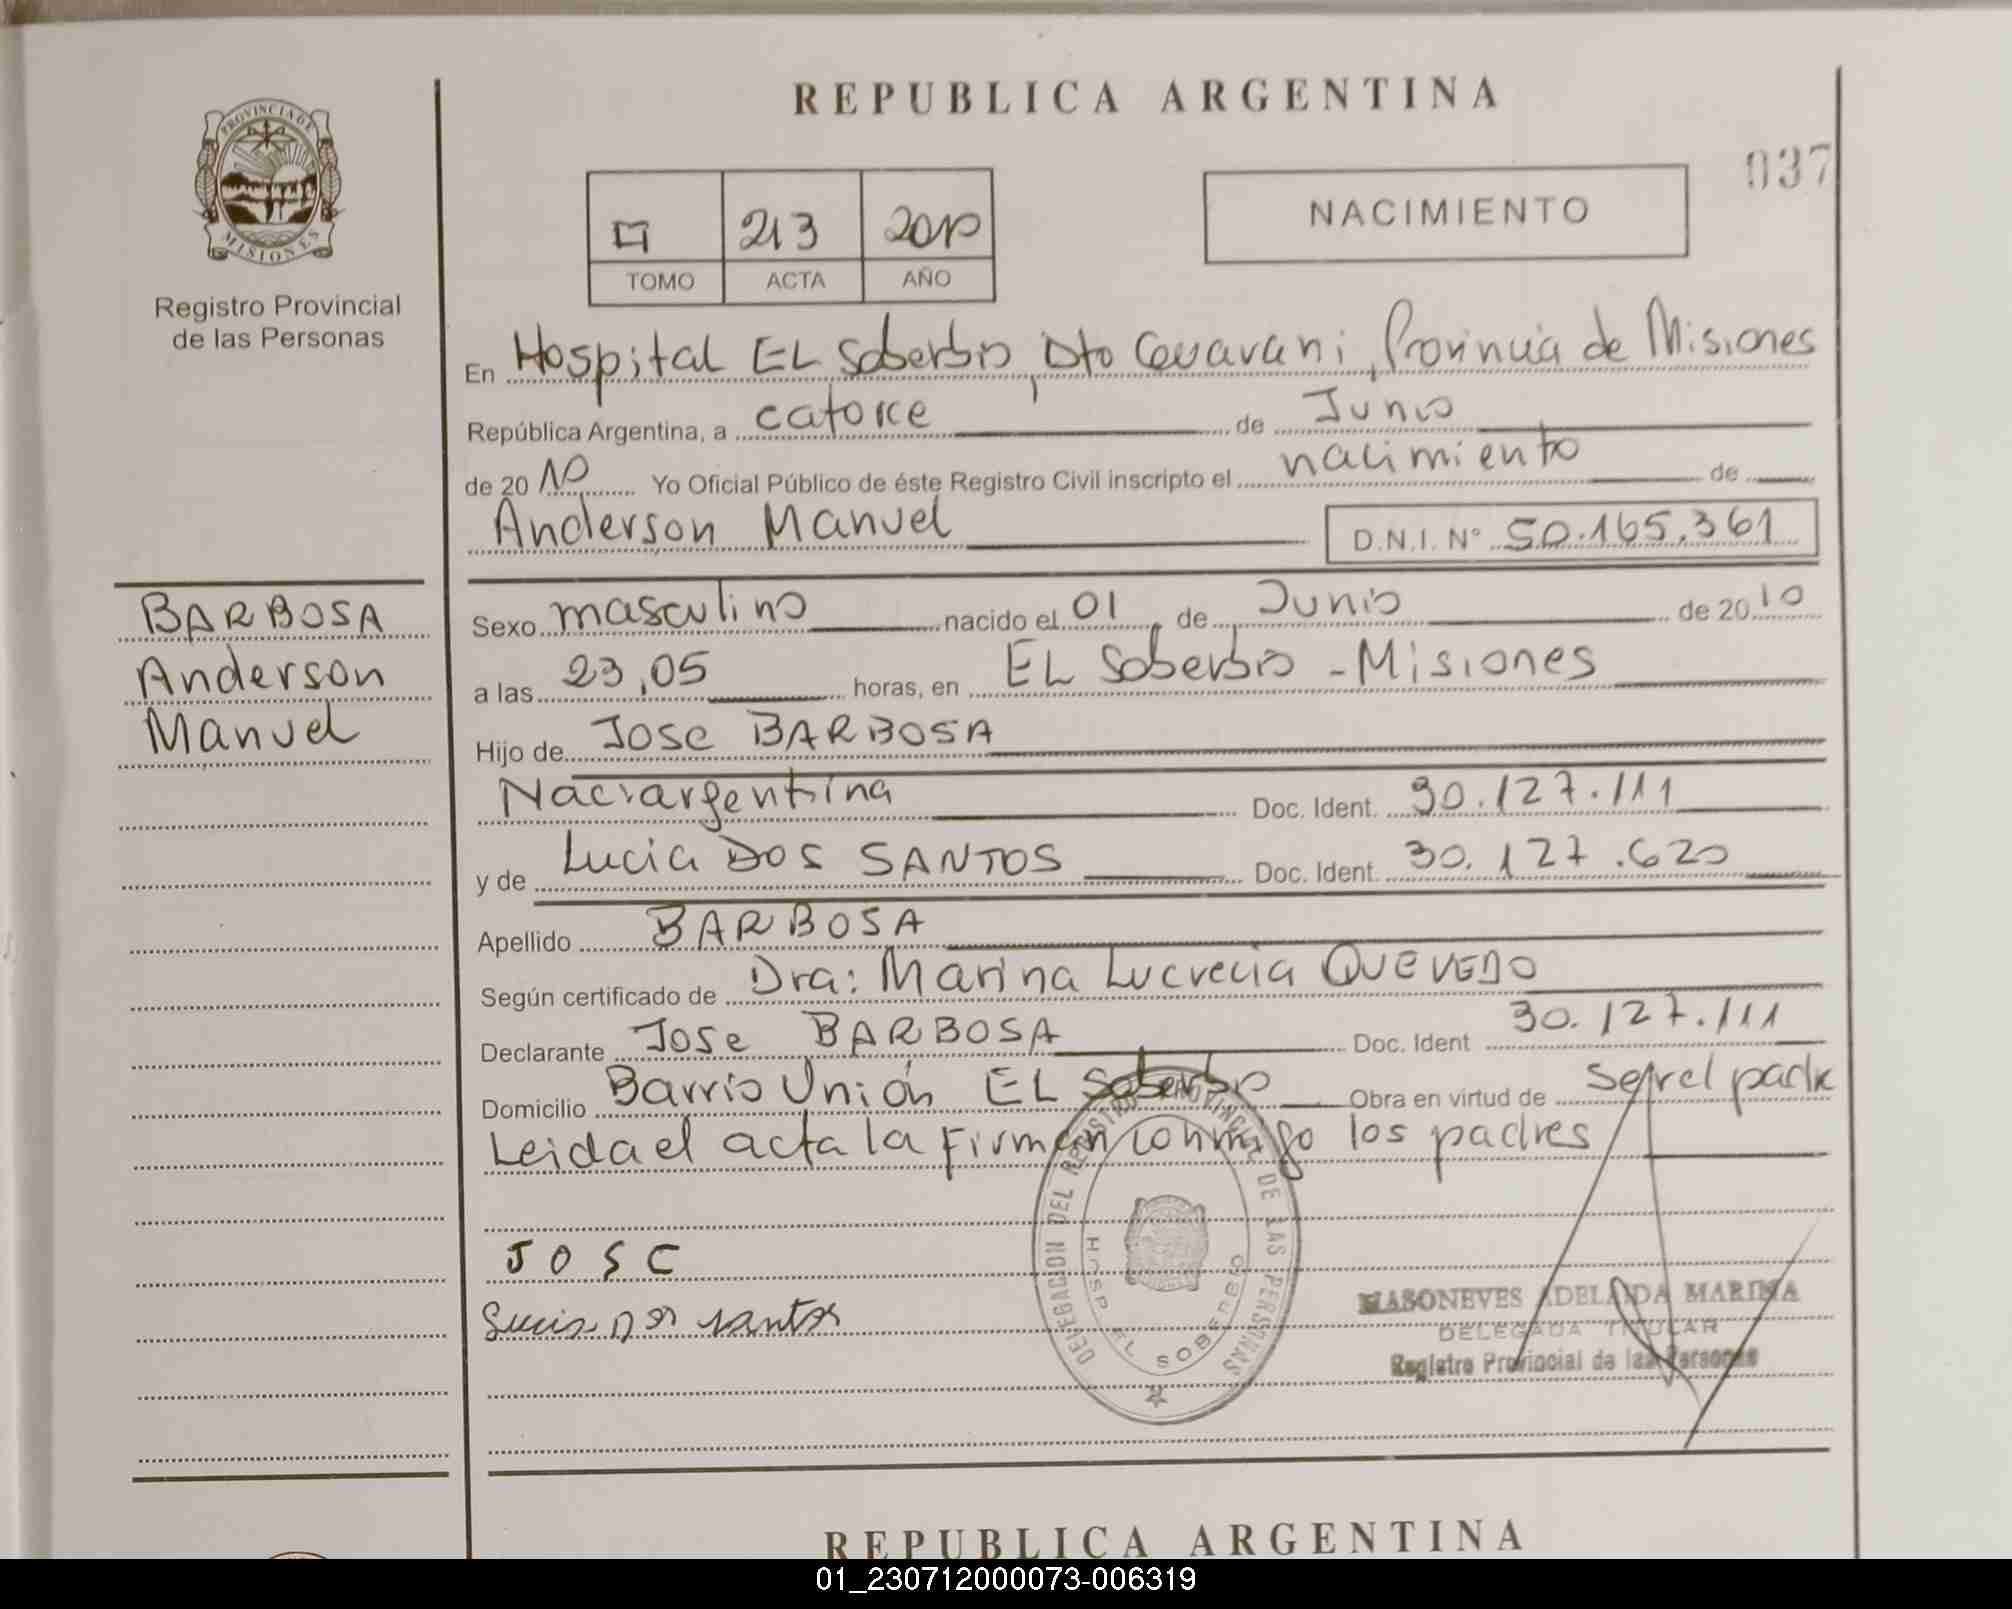 REPUBLICA ARGENTINA
037
PROVINCIA DE MISIONES
Registro Provincial
de las Personas
213 2010
TOMO ACTA AÑO
NACIMIENTO
En Hospital EL Soberbio, Dto Guarani, Provincia de Misiones
República Argentina, a catorce de Junio
de 2010 Yo Oficial Público de éste Registro Civil inscripto el nacimiento de
Anderson Manuel D.N.I. N° 50.165.361
BARBOSA
Anderson
Manuel
Sexo masculino nacido el 01 de Junio de 2010
a las 23,05 horas, en EL Soberbio - Misiones
Hijo de Jose BARBOSA
Nac: argentina Doc. Ident. 30.127.111
y de Lucia DOS SANTOS Doc. Ident. 30.127.620
Apellido BARBOSA
Según certificado de Dra: Marina Lucrecia QUEVEDO
Declarante Jose BARBOSA Doc. Ident 30.127.111
Domicilio Barrio Unión EL Soberbio Obra en virtud de ser el padre
Leida el acta la Firman conmigo los padres
JOSE
Lucia Dos santos
DELEGACION DEL REGISTRO PROVINCIAL DE LAS PERSONAS
HOSP. EL SOBERBIO
MASONEVES ADELAIDA MARINA
DELEGADA TITULAR
Registro Provincial de las Personas
REPUBLICA ARGENTINA
01_230712000073-006319